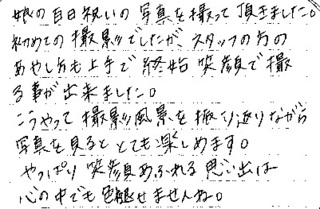 娘の百日祝いの写真を撮って頂きました。
初めての撮影でしたが、スタッフの方の
あやし方も上手で終始笑顔で撮
る事が出来ました。
こうやって撮影風景を振り返りながら
写真を見るととても楽しめます。
やっぱり笑顔あふれる思い出は
心の中でも色褪せませんね。